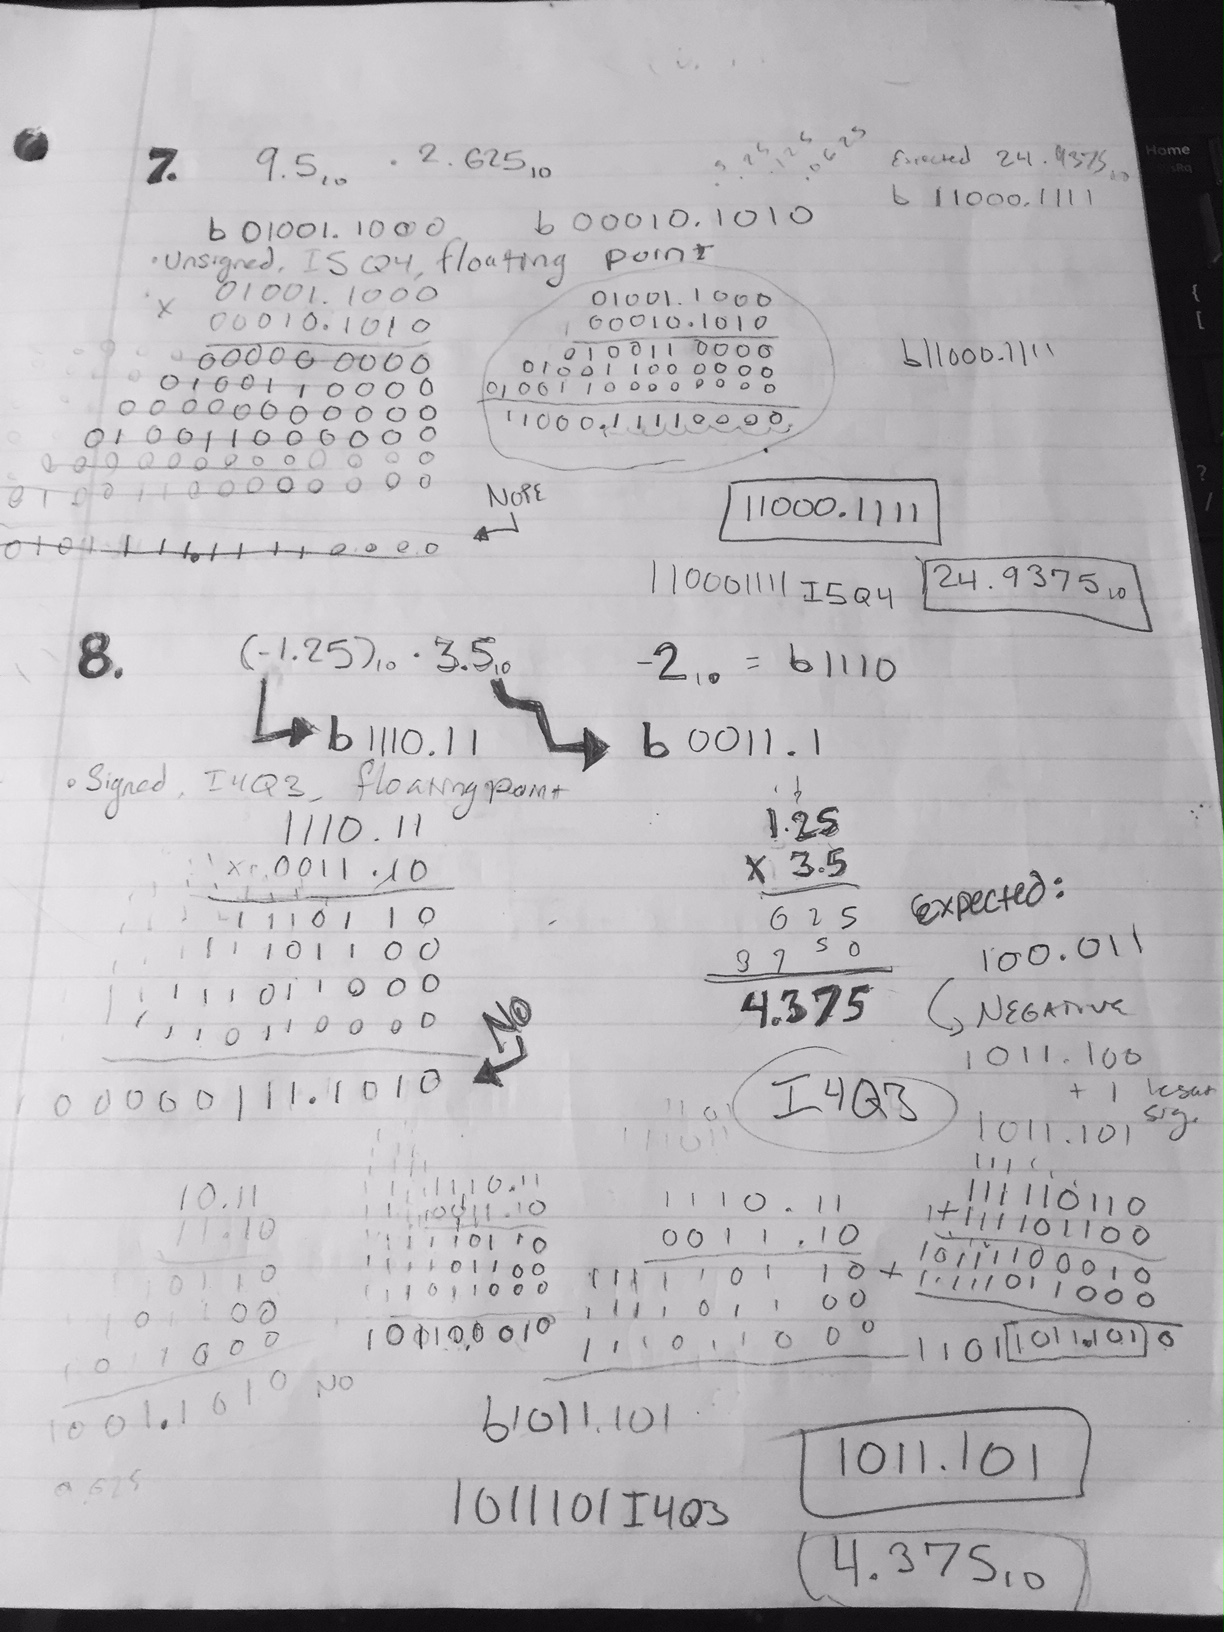 7. 9.5₁₀ · 2.625₁₀
Expected 24.9375₁₀
b 11000.1111
b 01001.1000 b 00010.1010
• Unsigned, I5Q4, floating point
x 01001.1000
00010.1010
000000000
0100110000
00000000000
010011000000
01001.1000
00010.1010
0100110000
010011000000
01001100000000
11000.11110000
b11000.1111
NOPE
11000.1111
110001111 I5Q4 24.9375₁₀
8. (-1.25)₁₀ · 3.5₁₀ -2₁₀ = b1110
b 1110.11 b 0011.1
• Signed, I4Q3, floating point
1110.11
x 0011.10
1110110
11101100
111011000
1110110000
NO
00000111.1010
1.25
x 3.5
625
3750
4.375
Expected:
100.011
NEGATIVE
1011.100
+ 1 least sig.
1011.101
I4Q3
10.11
11.10
10110
101100
1011000
1001.1010 NO
1110.11
0011.10
11110110
111101100
111011000
101100010
1110.11
0011.10
111110110
111101100
111011000
111110110
+111101100
10111100010
+ 111011000
1101 1011.101 0
b1011.101
1011.101
1011101 I4Q3
4.375₁₀
Home